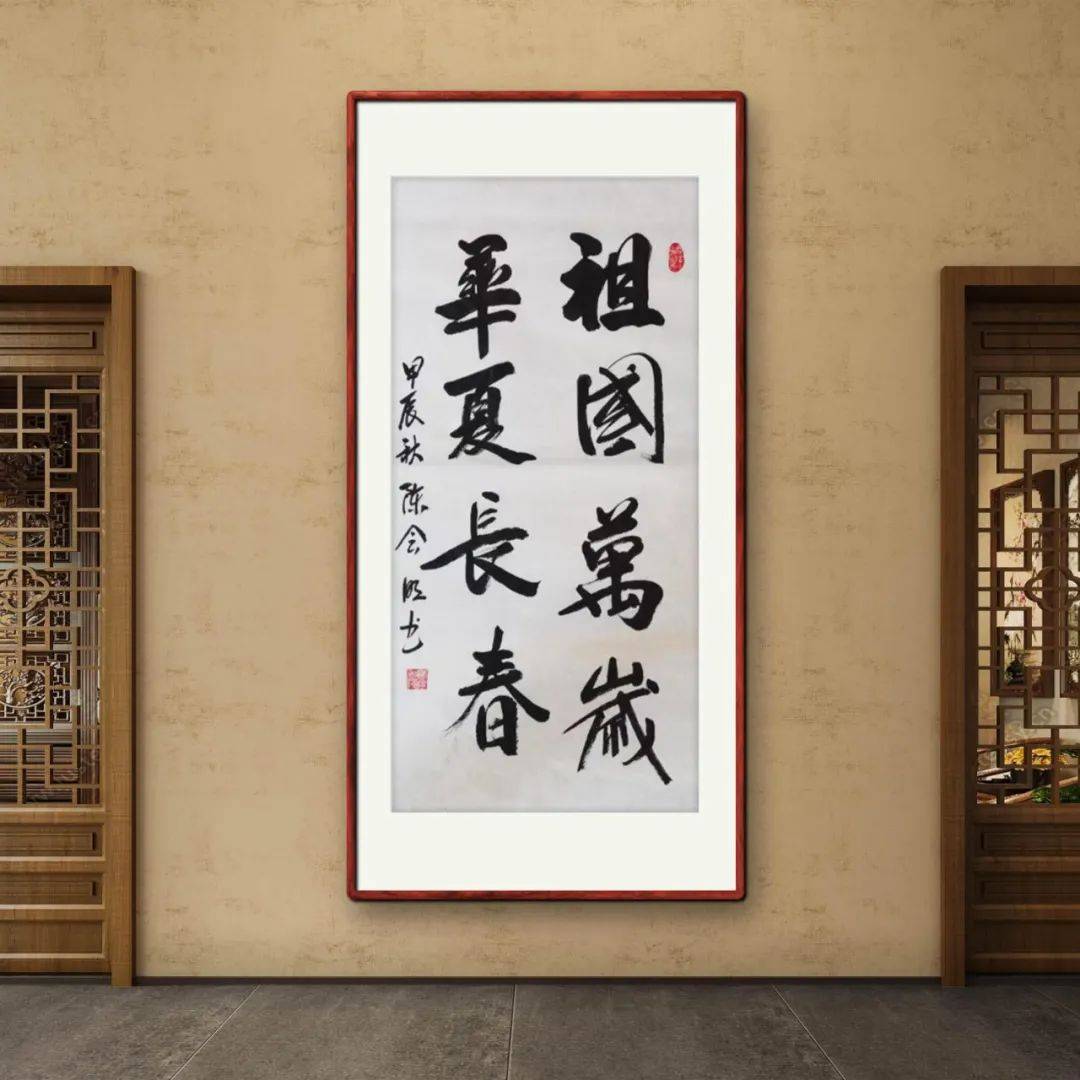 祖國萬歲
華夏長春
甲辰秋 陈会明书